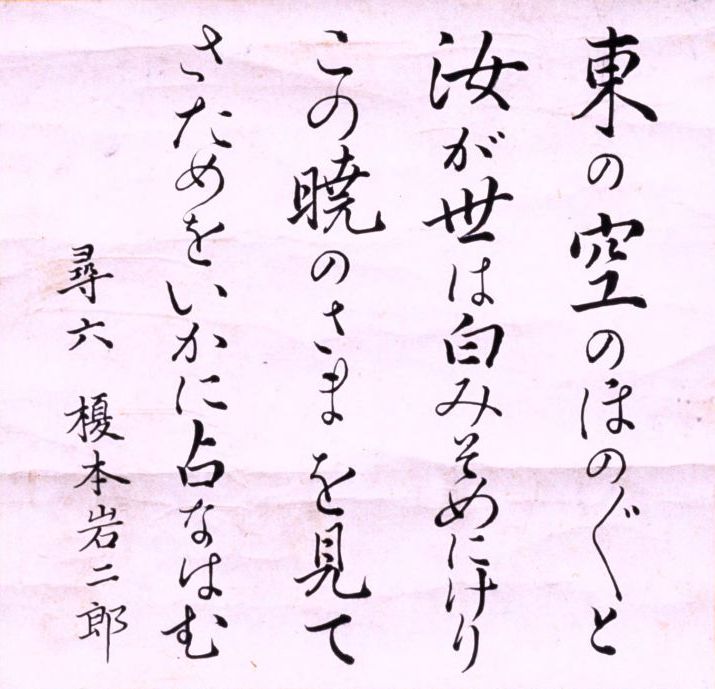 東の空のほの〴〵と
汝が世は白みそめにけり
この暁のさまを見て
さだめをいかに占なはむ
尋六 榎本岩二郎